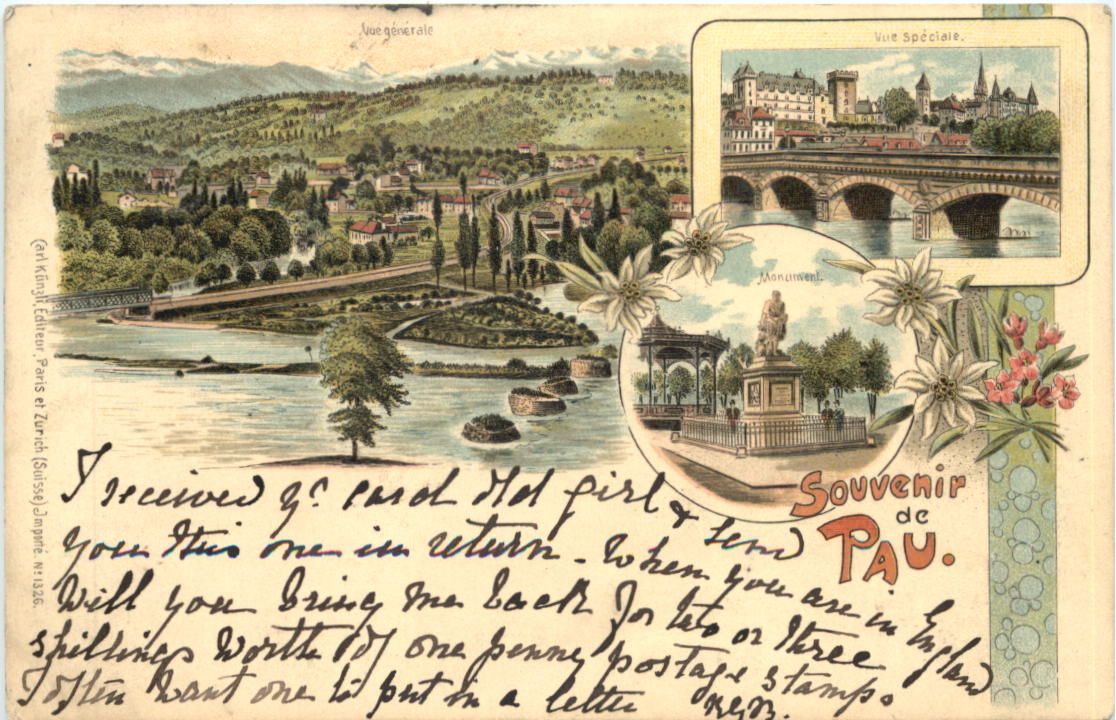 Vue générale
Vue spéciale.
Monument.
Souvenir
de
PAU.
Carl Künzli, Editeur, Paris et Zurich (Suisse) Importé. No 1326.
I received yr card old girl & send
you this one in return - When you are in England
Will you bring me back for two or three
shillings worth of one penny postage stamps
I often want one to put in a letter